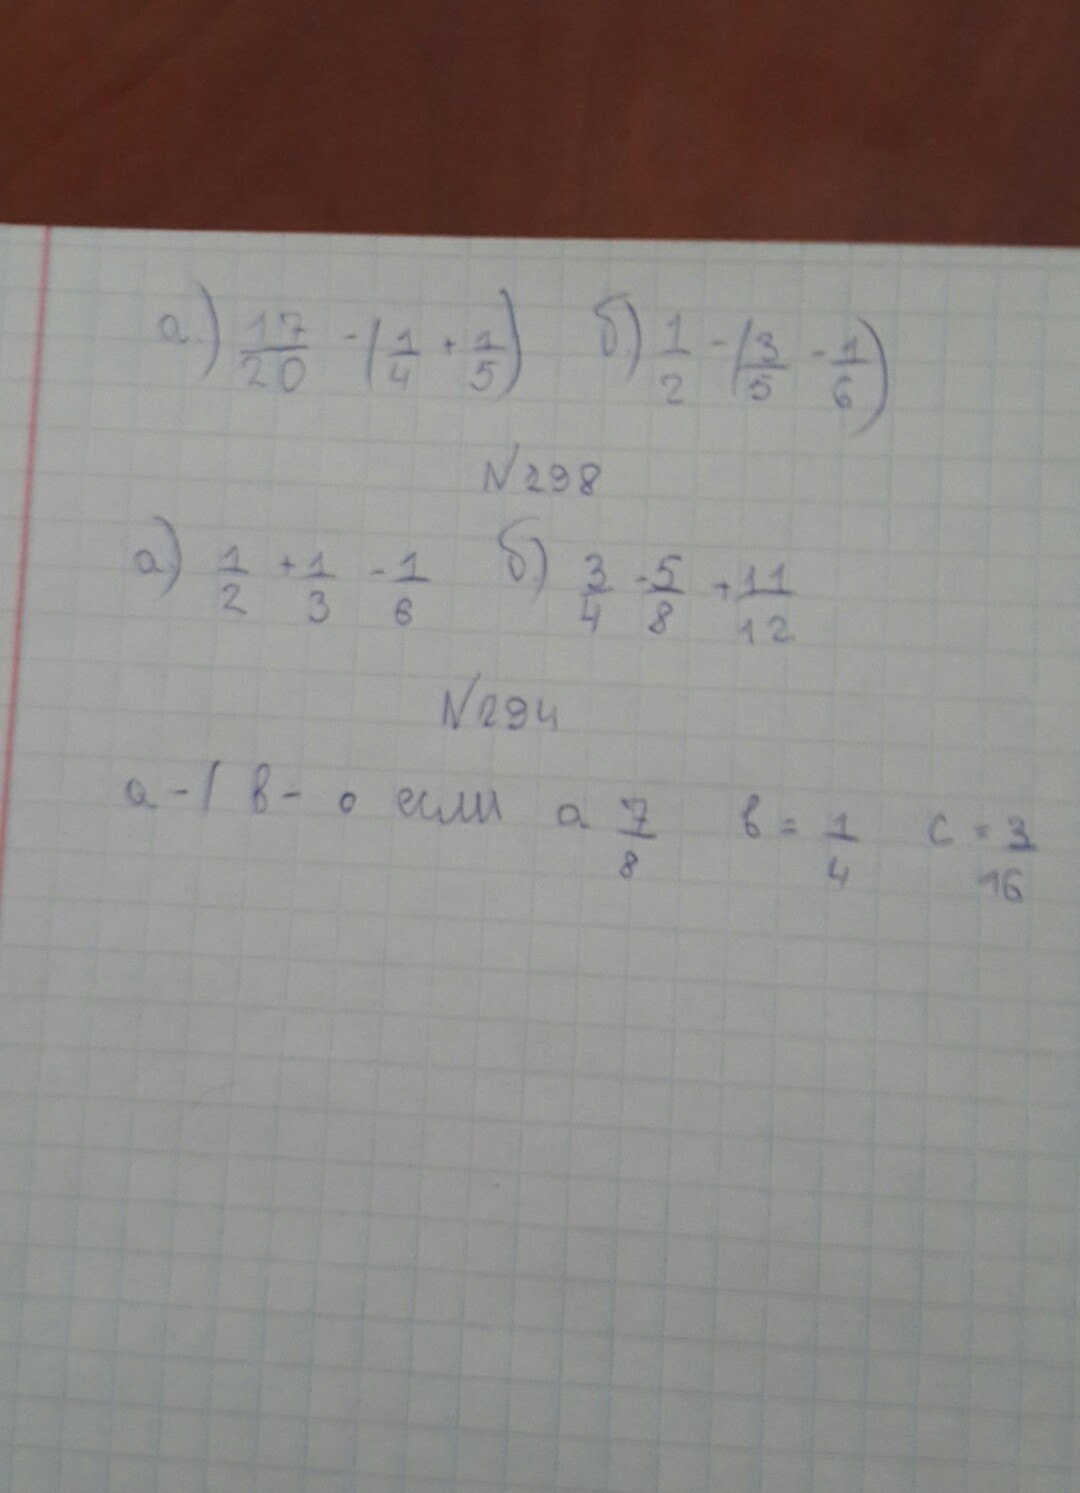 а.) 17/20 - (1/4 + 1/5) б) 1/2 - (3/5 - 1/6)
N298
а) 1/2 + 1/3 - 1/6 б) 3/4 - 5/8 + 11/12
N294
а - ( в - о если а 7/8 в = 1/4 с = 3/16